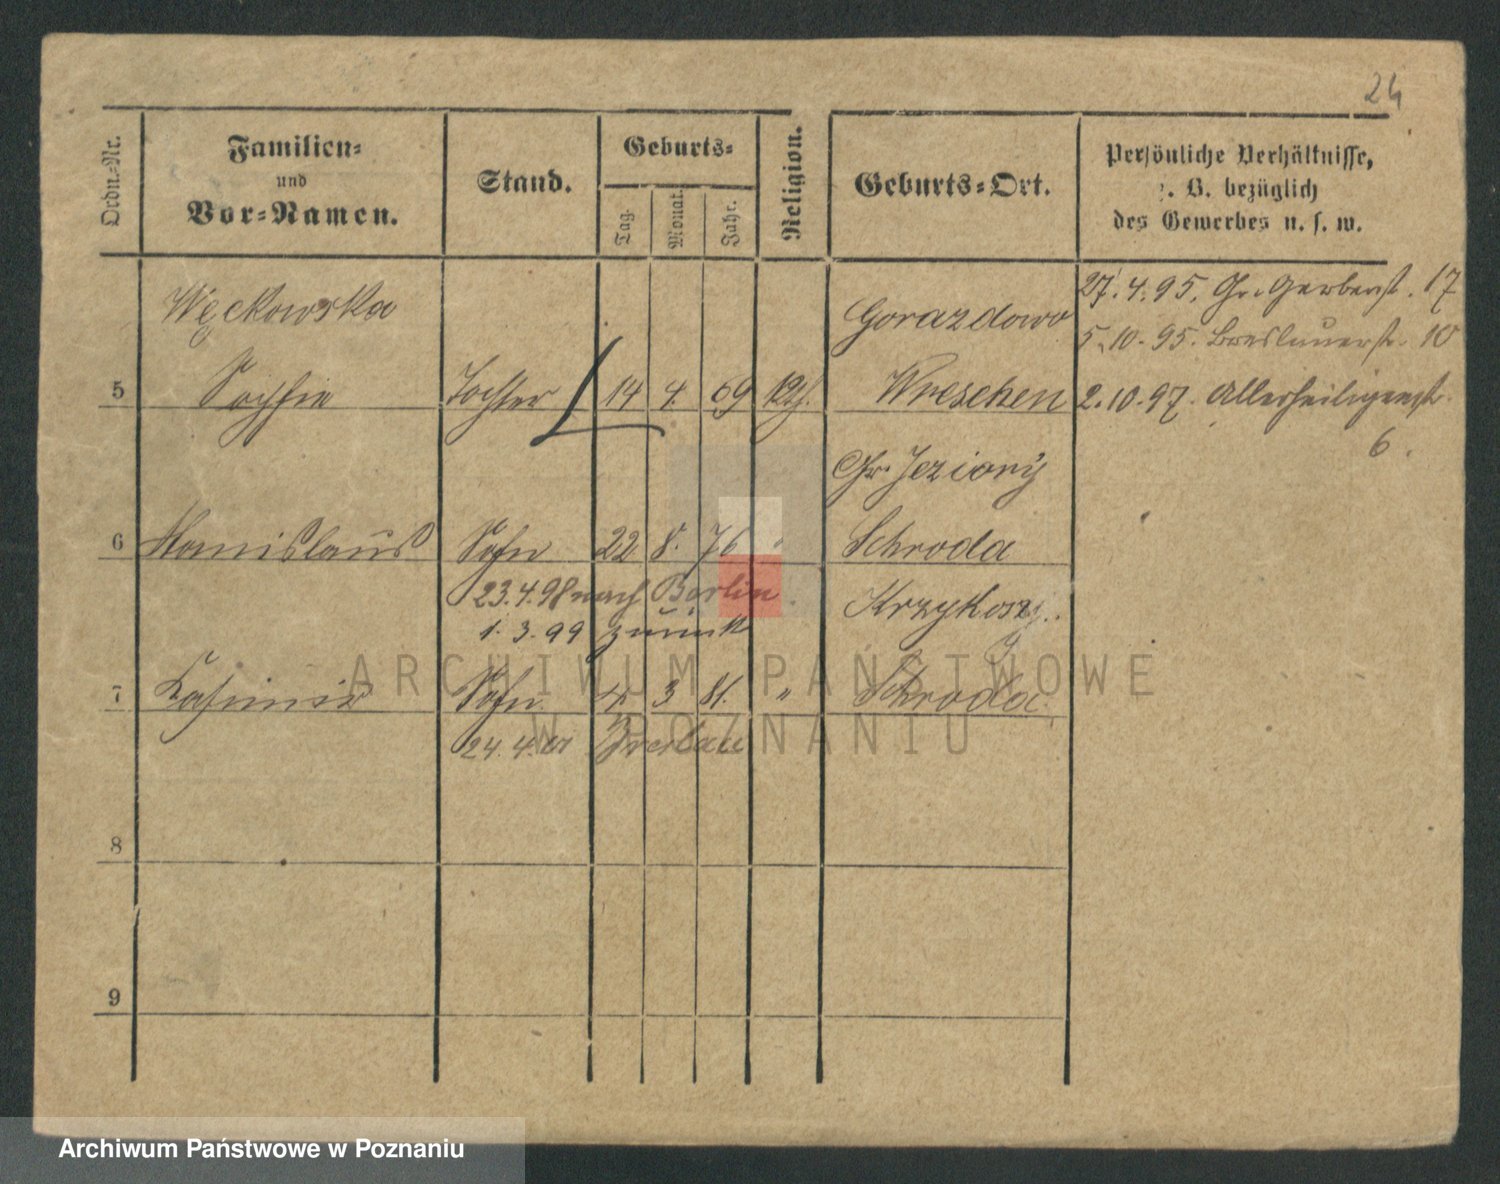 24
Ordn.-Nr.
Familien-
und
Vor-Namen.
Stand.
Geburts-
Tag.
Monat.
Jahr.
Religion.
Geburts-Ort.
Persönliche Verhältnisse,
z. B. bezüglich
des Gewerbes u. s. w.
Węckowska
Gorazdowo
27.4.95. Gr. Gerberst. 17
5.10.95. Breslauerst. 10
5 Sophie Tochter 14 4. 69 kth. Wreschen
2.10.97. Allerheiligenstr.
6.
Gr. Jeziory
6 Stanislaus Sohn 22. 8. 76 Schroda
23.4.98 nach Berlin
Krzykosy.
1.3.99 zurück
7 Kasimir Sohn 4. 3 81. " Schroda.
24.4.01 Breslau
8
9
ARCHIWUM PAŃSTWOWE
W POZNANIU
Archiwum Państwowe w Poznaniu